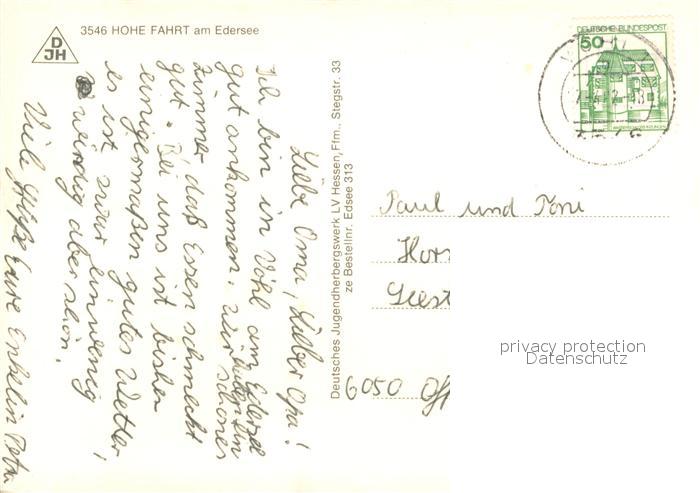 3546 HOHE FAHRT am Edersee
D
JH
Liebe Oma, Lieber Opa!
Ich bin in Vöhl am Edersee
gut ankommen. Wir haben ein schönes
Zimmer daß Essen schmeckt
gut. Bei uns ist bisher
einigermaßen gutes Wetter,
es ist zwar ein wenig
windig aber schön!
Viele Grüße Eure Enkelin Petra
Deutsches Jugendherbergswerk LV Hessen, Ffm., Stegstr. 33
ze Bestellnr. Edsee 313
DEUTSCHE BUNDESPOST
50
Paul und Toni
Hors
Seest
6050 Off
privacy protection
Datenschutz